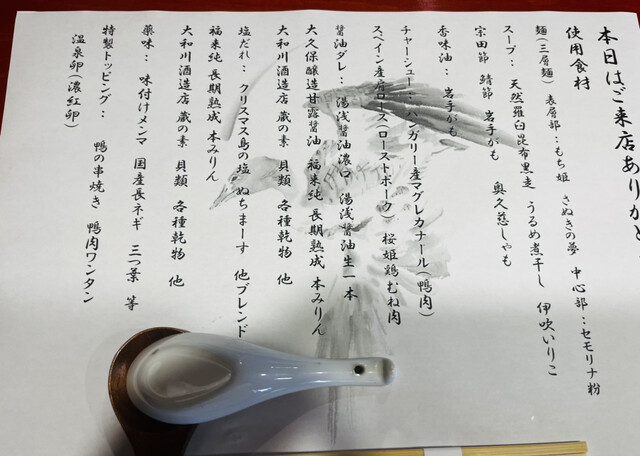 本日はご来店ありがと
使用食材
麺(三層麺) 表層部:もち姫 さぬきの夢 中心部:セモリナ粉
スープ: 天然羅臼昆布黒走 うるめ煮干し 伊吹いりこ
宗田節 鯖節 岩手がも 奥久慈しゃも
香味油: 岩手がも
チャーシュー: ハンガリー産マグレカナール(鴨肉)
スペイン産肩ロース(ローストポーク) 桜姫鶏むね肉
醤油ダレ: 湯浅醤油濃口 湯浅醤油生一本
大久保醸造甘露醤油 福来純 長期熟成 本みりん
大和川酒造店 蔵の素 貝類 各種乾物 他
塩だれ: クリスマス島の塩 ぬちまーす 他ブレンド
福来純 長期熟成 本みりん
大和川酒造店 蔵の素 貝類 各種乾物 他
薬味: 味付けメンマ 国産長ネギ 三つ葉 等
特製トッピング: 鴨の串焼き 鴨肉ワンタン
温泉卵(濃紅卵)